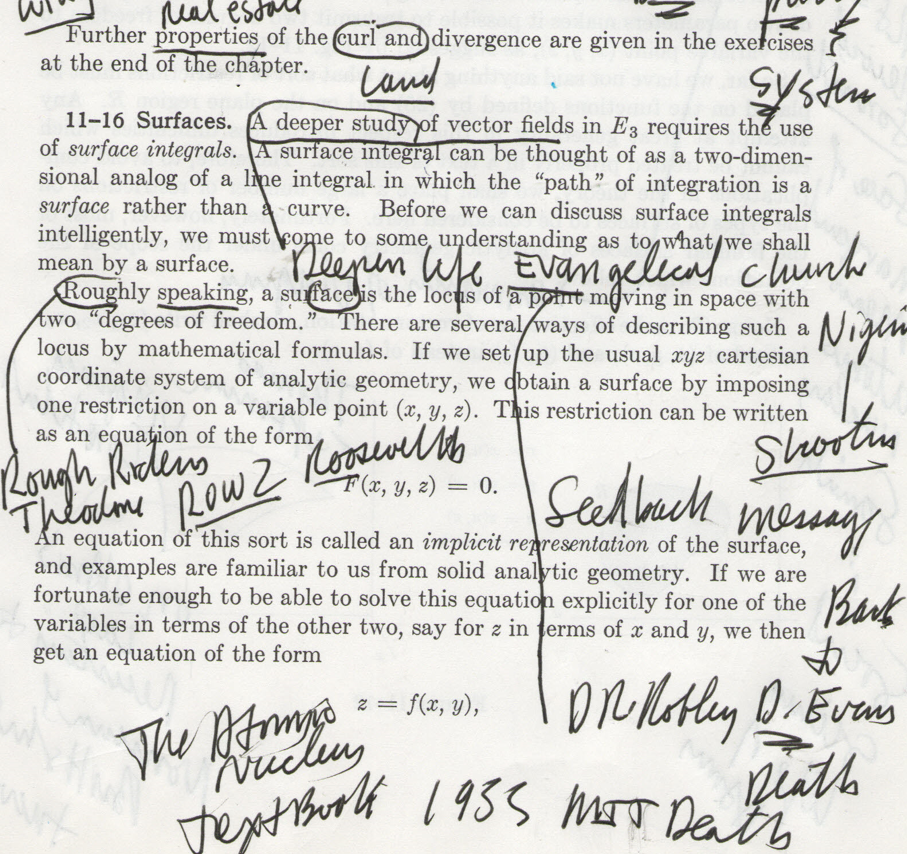 real estate
Further properties of the curl and divergence are given in the exercises
at the end of the chapter.
Land
System
11–16 Surfaces. A deeper study of vector fields in E3 requires the use
of surface integrals. A surface integral can be thought of as a two-dimen-
sional analog of a line integral in which the “path” of integration is a
surface rather than a curve. Before we can discuss surface integrals
intelligently, we must come to some understanding as to what we shall
mean by a surface.
Deeper Life Evangelical Church
Roughly speaking, a surface is the locus of a point moving in space with
two “degrees of freedom.” There are several ways of describing such a
locus by mathematical formulas. If we set up the usual xyz cartesian
coordinate system of analytic geometry, we obtain a surface by imposing
one restriction on a variable point (x, y, z). This restriction can be written
as an equation of the form
Shooting
Rough Riders Roosevelts
Theodore ROWZ
F(x, y, z) = 0.
Seedback message
An equation of this sort is called an implicit representation of the surface,
and examples are familiar to us from solid analytic geometry. If we are
fortunate enough to be able to solve this equation explicitly for one of the
variables in terms of the other two, say for z in terms of x and y, we then
get an equation of the form
Back
to
z = f(x, y),
DR Robley D. Evans
The Atomic
Nucleus
Death
textBook 1955 MIT Death